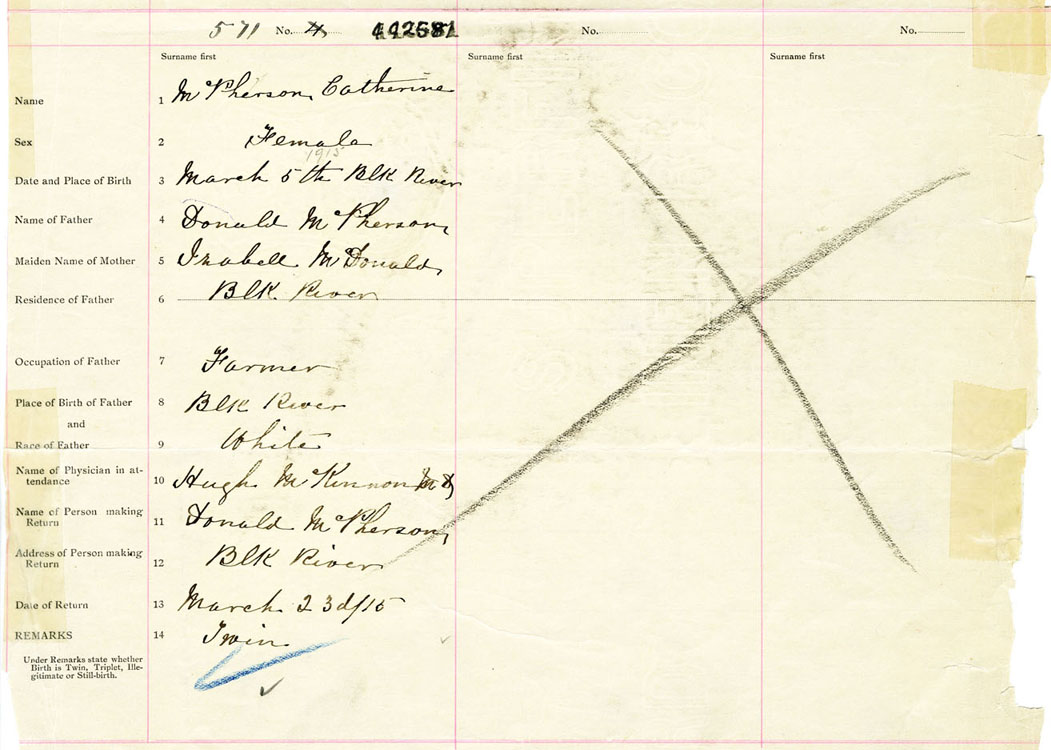 571 No. 4 442581 No. No.
Surname first Surname first Surname first
Name 1 McPherson, Catherine
Sex 2 Female
1915
Date and Place of Birth 3 March 5th Blk River
Name of Father 4 Donald McPherson,
Maiden Name of Mother 5 Izabell McDonald,
Residence of Father 6 Blk. River
Occupation of Father 7 Farmer
Place of Birth of Father 8 Blk River
and
Race of Father 9 White
Name of Physician in at-
tendance 10 Hugh McKinnon MD
Name of Person making
Return 11 Donald McPherson,
Address of Person making
Return 12 Blk River
Date of Return 13 March 23d/15
REMARKS 14 Twin
Under Remarks state whether
Birth is Twin, Triplet, Ille-
gitimate or Still-birth.